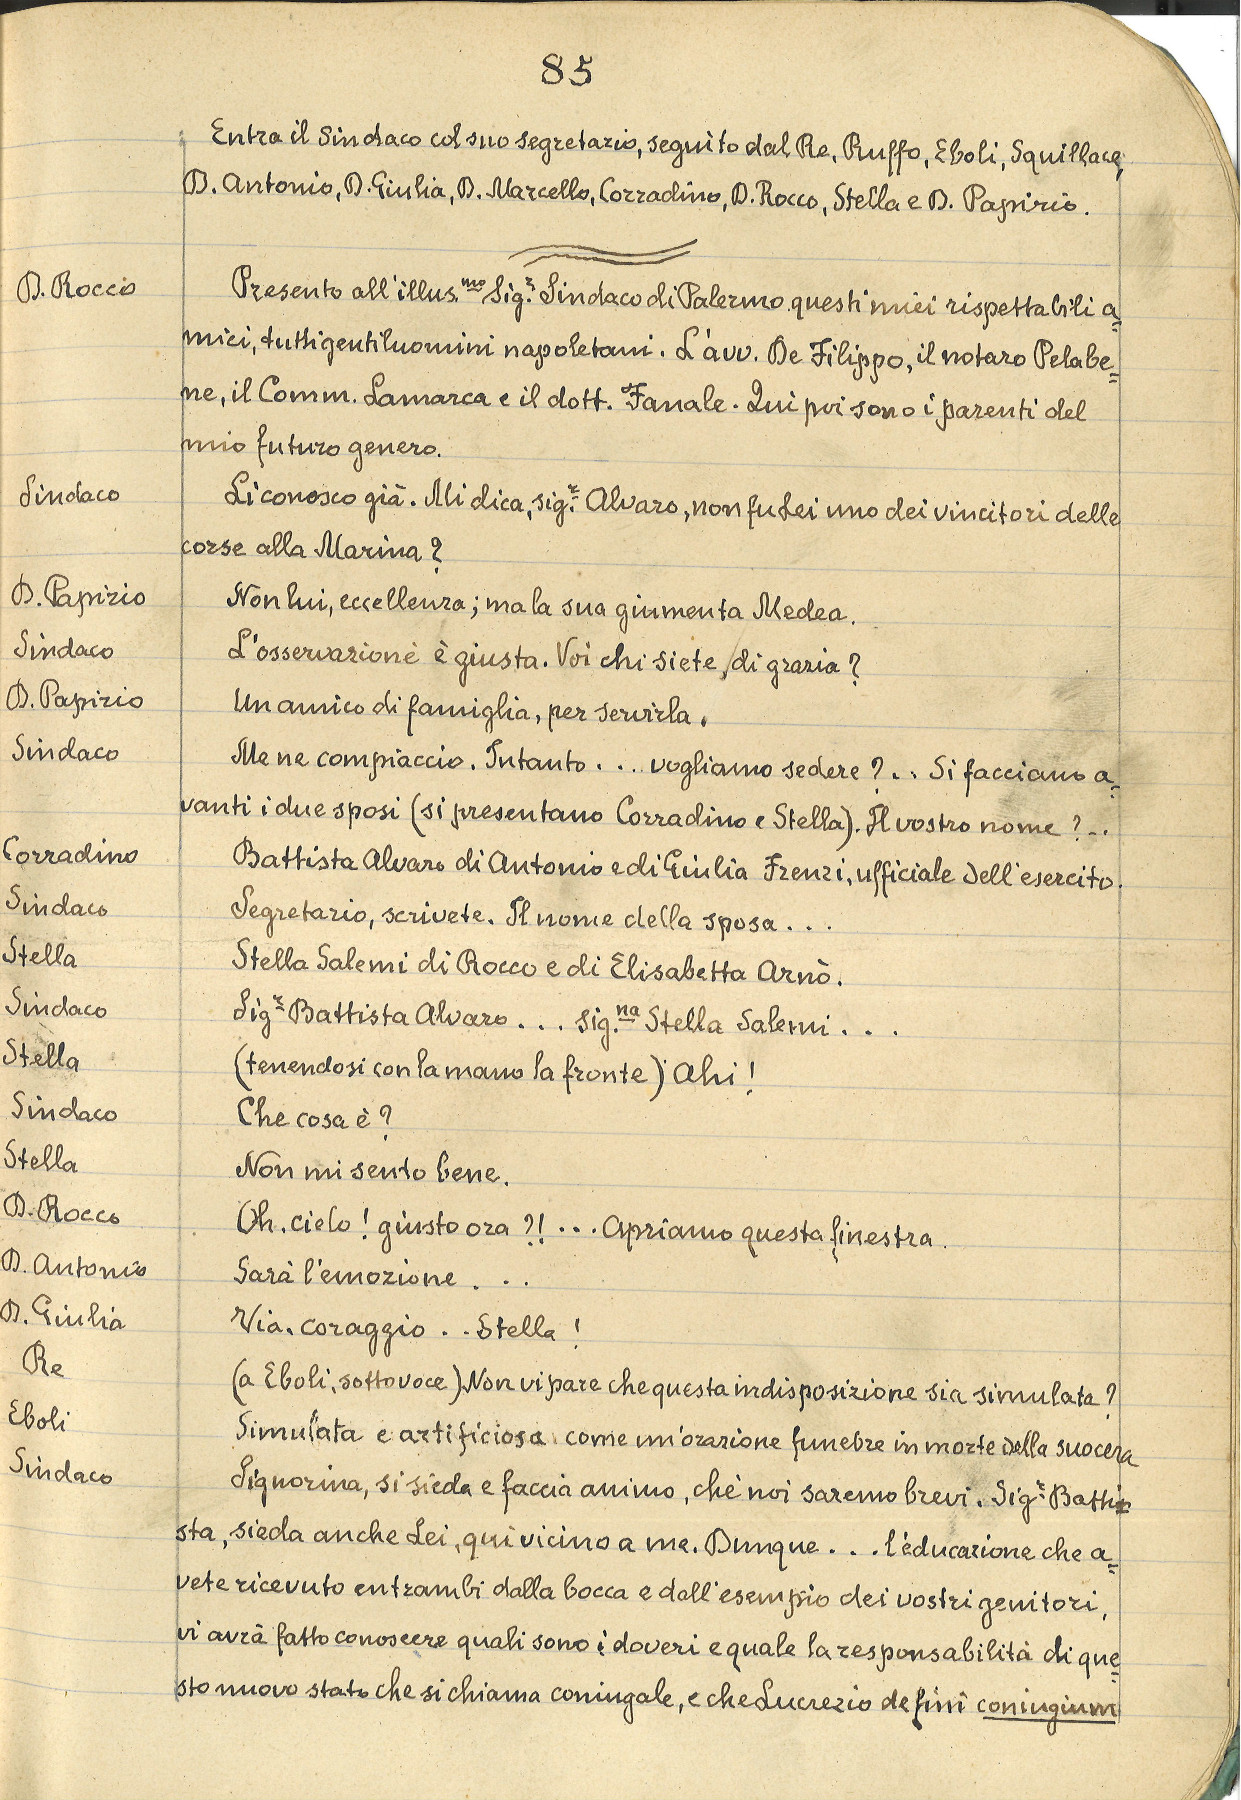 85
Entra il Sindaco col suo segretario, seguìto dal Re, Ruffo, Eboli, Squillace,
D. Antonio, D. Giulia, D. Marcello, Corradino, D. Rocco, Stella e D. Papirio.
D. Rocco Presento all'illus.mo Sig.r Sindaco di Palermo questi miei rispettabili a=
mici, tutti gentiluomini napoletani. L'avv. De Filippo, il notaro Pelabe=
ne, il Comm. Lamarca e il dott. Fanale. Qui poi sono i parenti del
mio futuro genero.
Sindaco Li conosco già. Mi dica, sig.r Alvaro, non fu Lei uno dei vincitori delle
corse alla Marina?
D. Papirio Non lui, eccellenza; ma la sua giumenta Medea.
Sindaco L'osservazione è giusta. Voi chi siete, di grazia?
D. Papirio Un amico di famiglia, per servirla.
Sindaco Me ne compiaccio. Intanto... vogliamo sedere?.. Si facciano a=
vanti i due sposi (si presentano Corradino e Stella). Il vostro nome?..
Corradino Battista Alvaro di Antonio e di Giulia Frenzi, ufficiale dell'esercito.
Sindaco Segretario, scrivete. Il nome della sposa...
Stella Stella Salemi di Rocco e di Elisabetta Arnò.
Sindaco Sig.r Battista Alvaro... sig.na Stella Salemi...
Stella (tenendosi con la mano la fronte) Ahi!
Sindaco Che cosa è?
Stella Non mi sento bene.
D. Rocco Oh, cielo! giusto ora?!... Apriamo questa finestra.
D. Antonio Sarà l'emozione...
D. Giulia Via, coraggio.. Stella!
Re (a Eboli, sottovoce) Non vi pare che questa indisposizione sia simulata?
Eboli Simulata e artificiosa come un'orazione funebre in morte della suocera
Sindaco Signorina, si sieda e faccia animo, chè noi saremo brevi. Sig.r Batti=
sta, sieda anche Lei, qui vicino a me. Dunque... l'educazione che a=
vete ricevuto entrambi dalla bocca e dall'esempio dei vostri genitori,
vi avrà fatto conoscere quali sono i doveri e quale la responsabilità di que=
sto nuovo stato che si chiama coniugale, e che Lucrezio definì coniugium